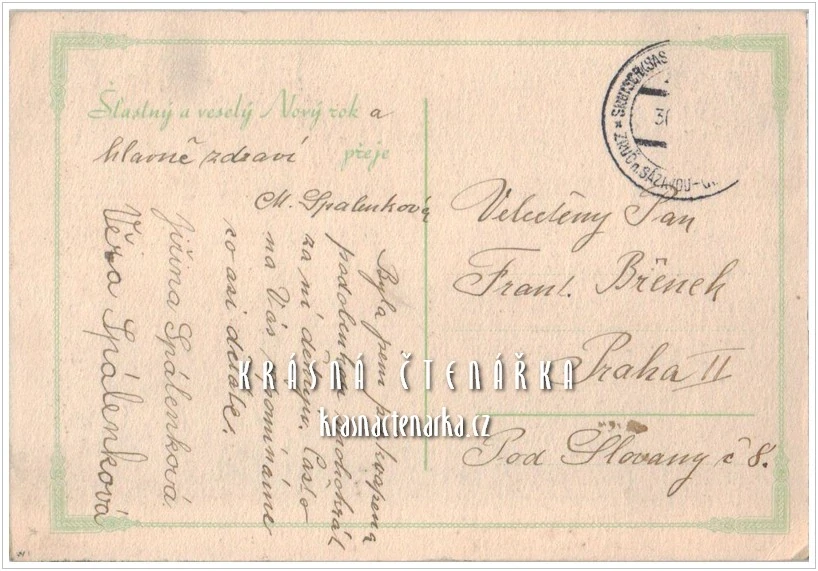 Šťastný a veselý Nový rok a
hlavně zdraví přeje
M. Spalenková
Byla jsem překvapena
podobenkou
za ní děkuji. Často
na Vás vzpomínáme
co asi děláte.
Jiřina Spálenková
Věra Spálenková
Veleděný Pan
Frant. Břenek
Praha II
Pod Slovany č 8.
ZRUČ n. SÁZAVOU
30
KRÁSNÁ ČTENÁŘKA
krasnactenarka.cz